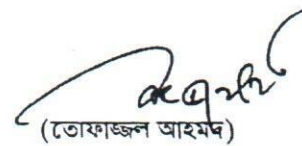 (তোফাজ্জল আহমদ)